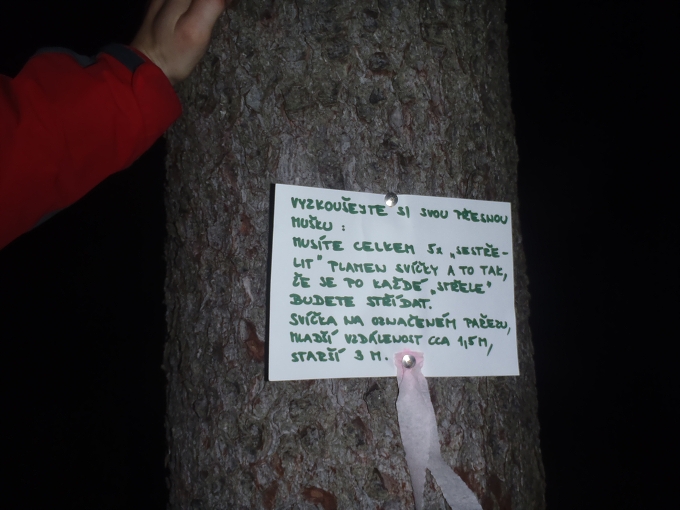 VYZKOUŠEJTE SI SVOU PŘESNOU
MUŠKU :
MUSÍTE CELKEM 5x „SESTŘE-
LIT" PLAMEN SVÍČKY A TO TAK,
ŽE SE PO KAŽDÉ „STŘELE"
BUDETE STŘÍDAT.
SVÍČKA NA OZNAČENÉM PAŘEZU,
MLADŠÍ VZDÁLENOST CCA 1,5M,
STARŠÍ 3 M.